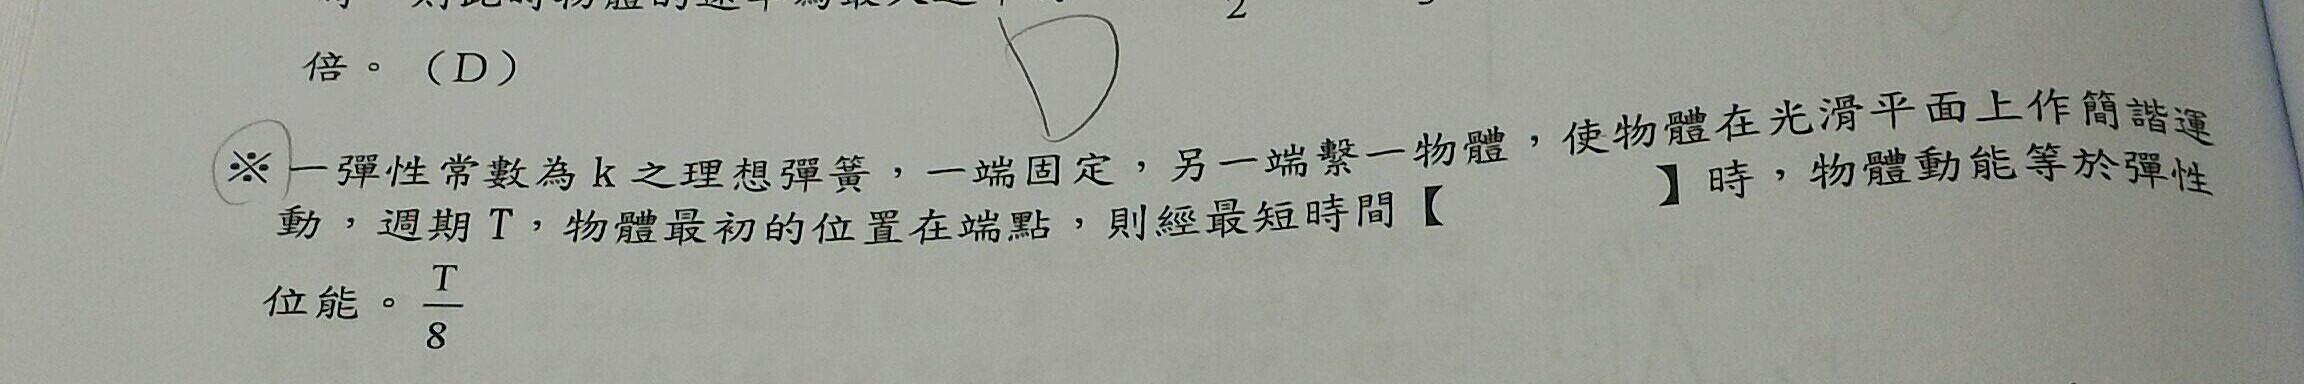 倍。（D） D
※一彈性常數為k之理想彈簧，一端固定，另一端繫一物體，使物體在光滑平面上作簡諧運
動，週期T，物體最初的位置在端點，則經最短時間【 】時，物體動能等於彈性
位能。T/8